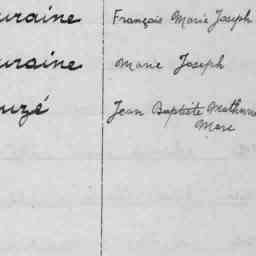 uraine François Marie Joseph
uraine Marie Joseph
uzé Jean Baptiste Mathurin
Marc